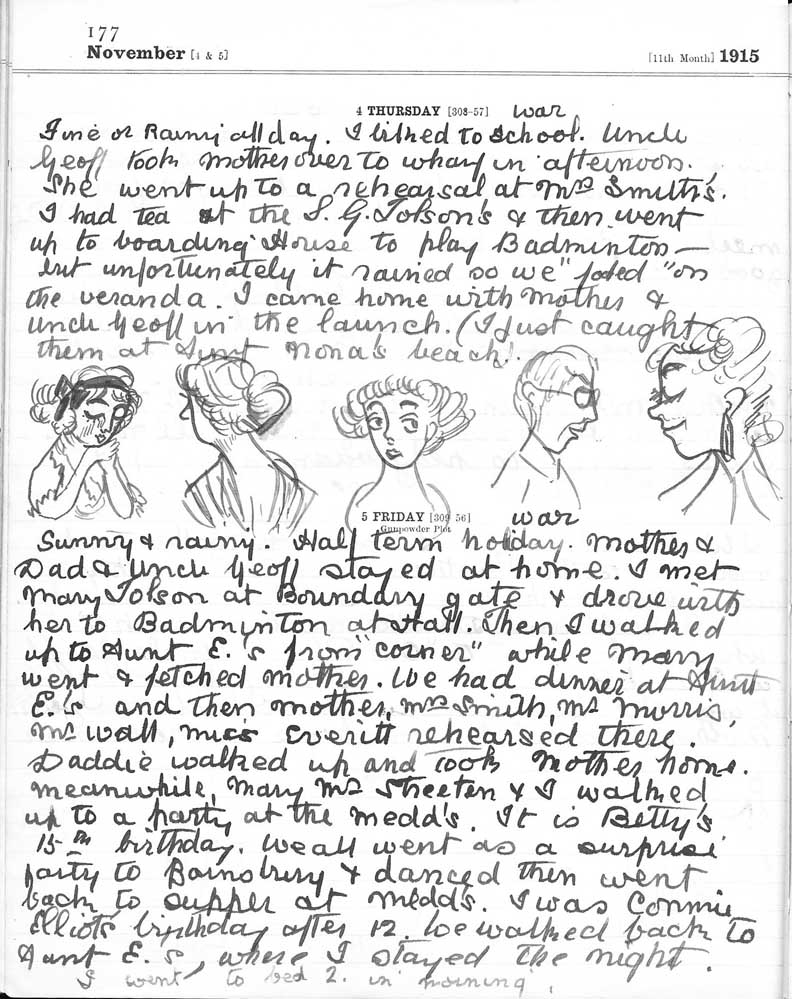 177
November [4 & 5] [11th Month] 1915
4 THURSDAY [308-57] war
Fine or Rainy all day. I biked to school. Uncle
Geoff took mother over to wharf in afternoon.
She went up to a rehearsal at Mrs Smith's.
I had tea at the S. G. Tolson's & then went
up to boarding House to play Badminton —
but unfortunately it rained so we " " on
the veranda. I came home with mother &
uncle Geoff in the launch. (I just caught
them at Aunt Nona's beach.
5 FRIDAY [309-56] war
Gunpowder Plot
Sunny & rainy. Half term holiday. Mother &
Dad & Uncle Geoff stayed at home. I met
Mary Tolson at Boundary gate & drove with
her to Badminton at Hall. Then I walked
up to Aunt E.'s from "corner" while Mary
went & fetched mother. We had dinner at Aunt
E.'s and then mother, Mrs Smith, Mr Morris,
Mr Wall, Miss Everitt rehearsed there.
Daddie walked up and took Mother home.
meanwhile, Mary Mr Streeten & I walked
up to a party at the Medd's. It is Betty's
15th birthday. We all went as a surprise
party to Bainsbury & danced then went
back to supper at Medd's. I was Connie
Elliot's birthday after 12. We walked back to
Aunt E.'s, where I stayed the night.
I went to bed 2. in morning.